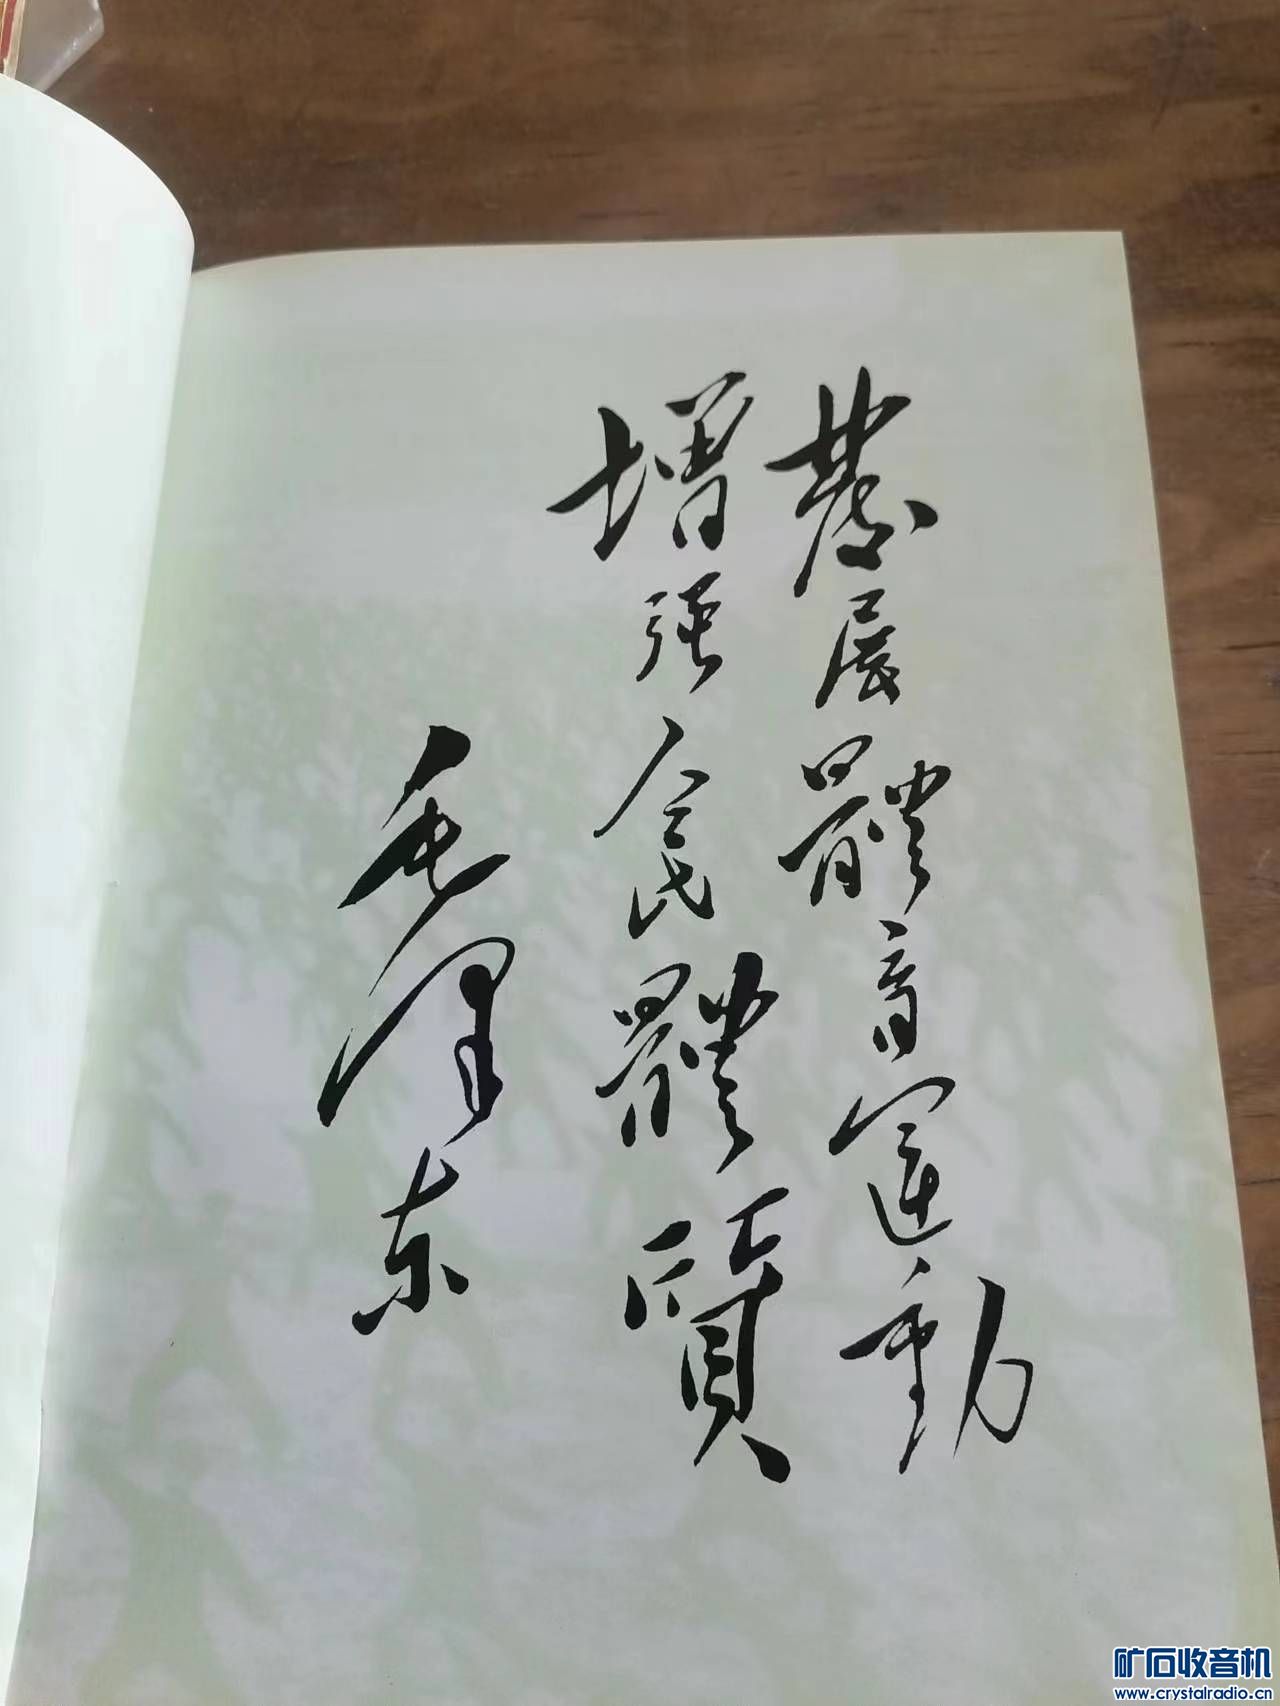 發展體育運動
增强人民體質
毛泽东
矿石收音机
www.crystalradio.cn